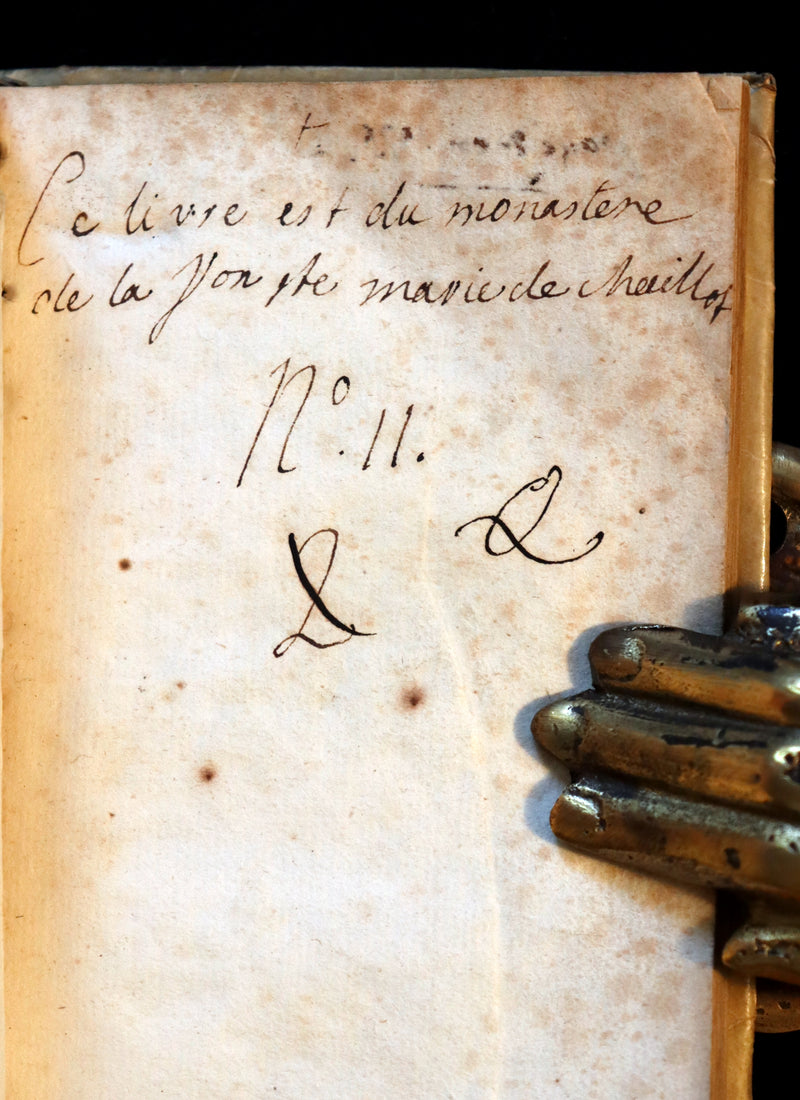 Ce livre est du monastere
de la Von ste marie de Chaillot
N° 11.